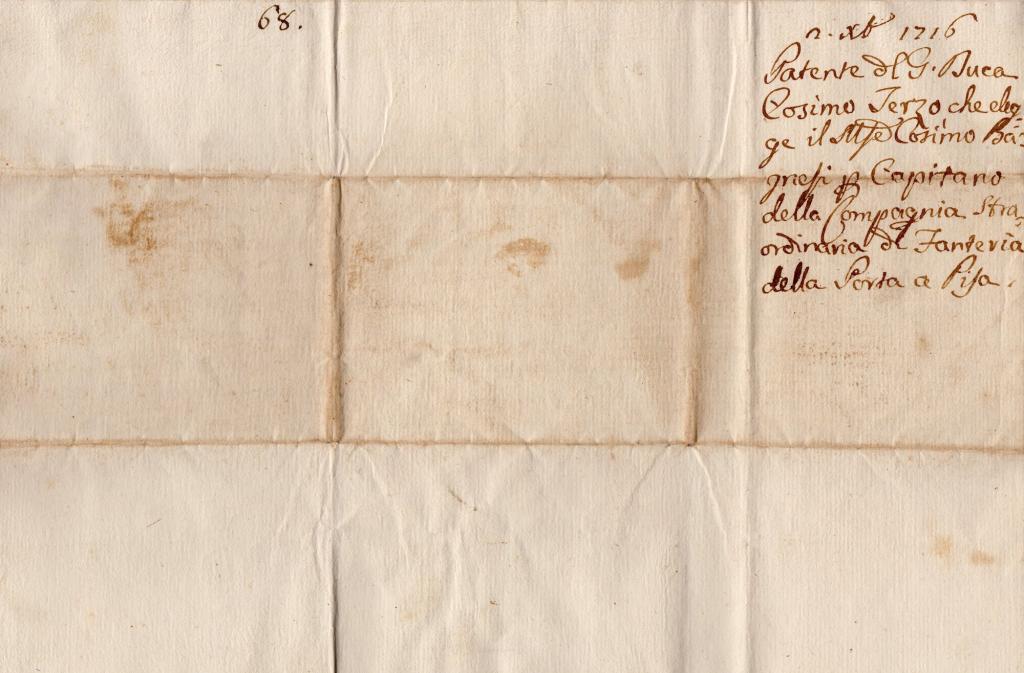 68.
2. Xb 1716
Patente dl G. Duca
Cosimo Terzo che eleg=
ge il Mse Cosimo Ba=
gnesi p Capitano
della Compagnia Stra=
ordinaria di Fanteria
della Porta a Pisa.